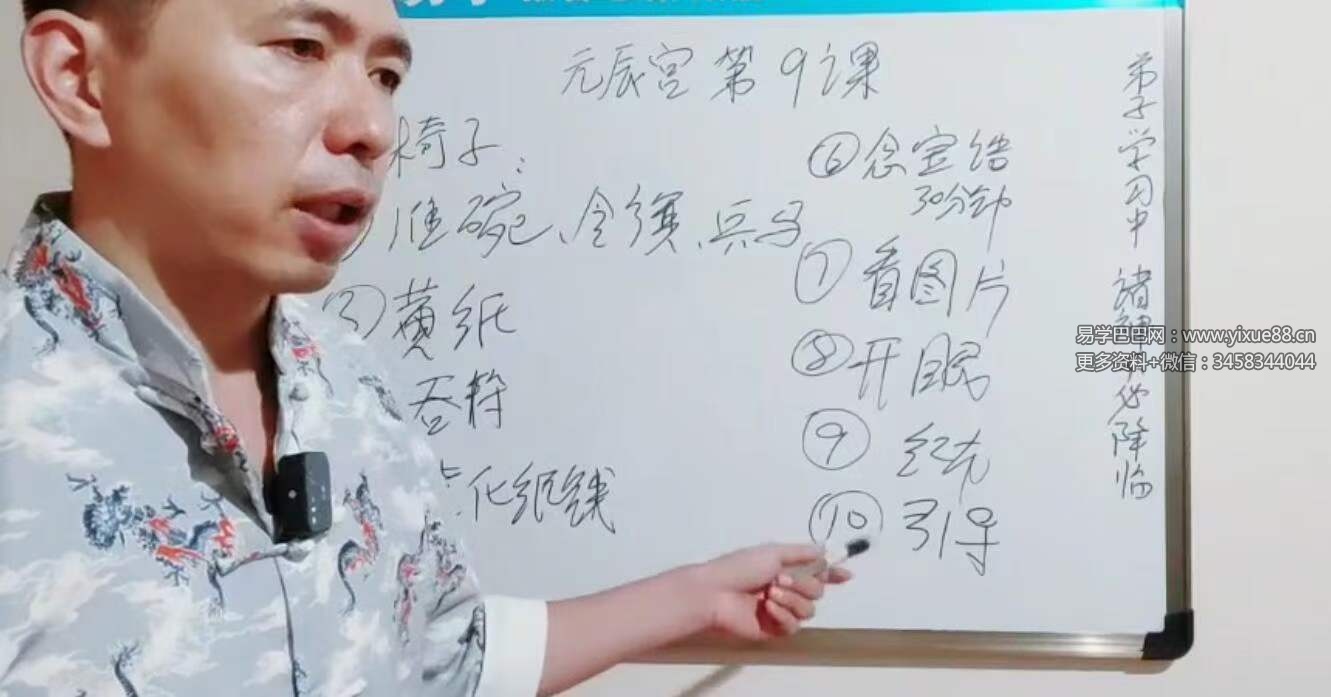 元辰宫 第9课
椅子：
准碗、令旗、兵马
③ 黄纸
吞符
化纸钱
⑥ 念宝诰
30分钟
⑦ 看图片
⑧ 开眼
⑨ 红光
⑩ 引导
弟子学习中 诸神必降临
易学巴巴网：www.yixue88.cn
更多资料+微信：3458344044